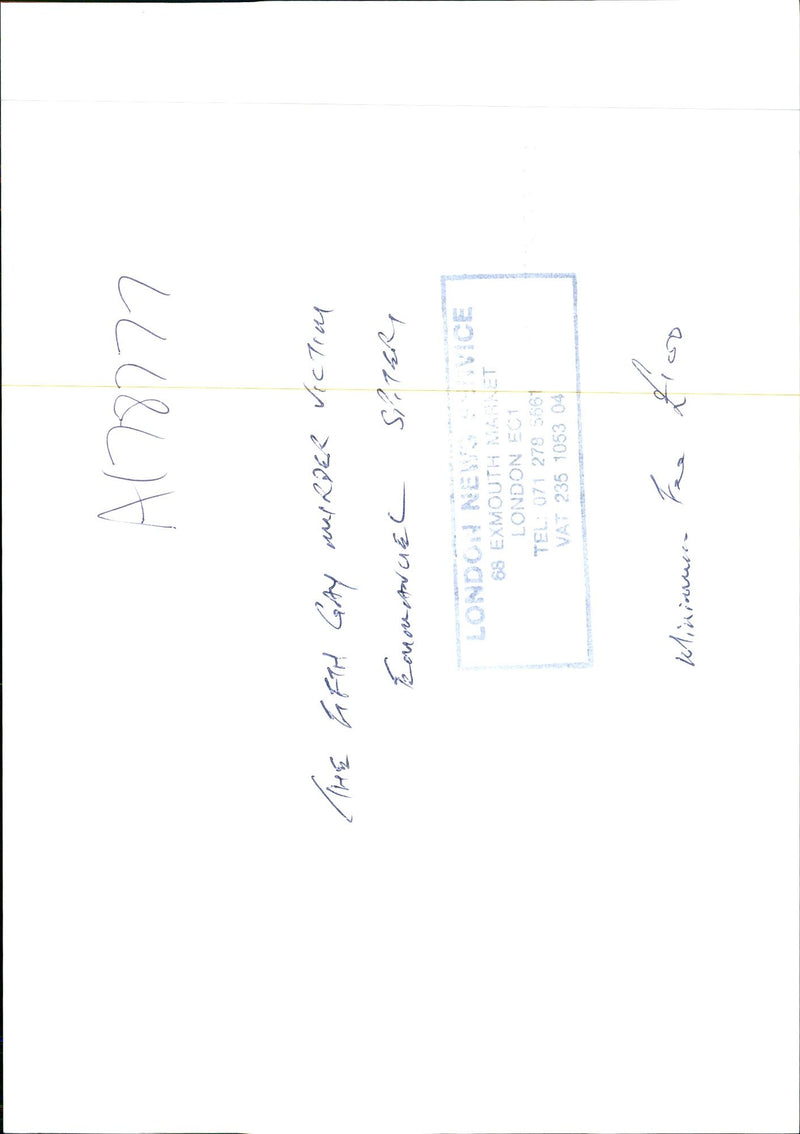 A178777
THE FIFTH GAY MURDER VICTIM
EMMANUEL SPITERI
LONDON NEWS SERVICE
68 EXMOUTH MARKET
LONDON EC1
TEL: 071 278 5661
VAT 235 1053 04
Minimum Fee £100